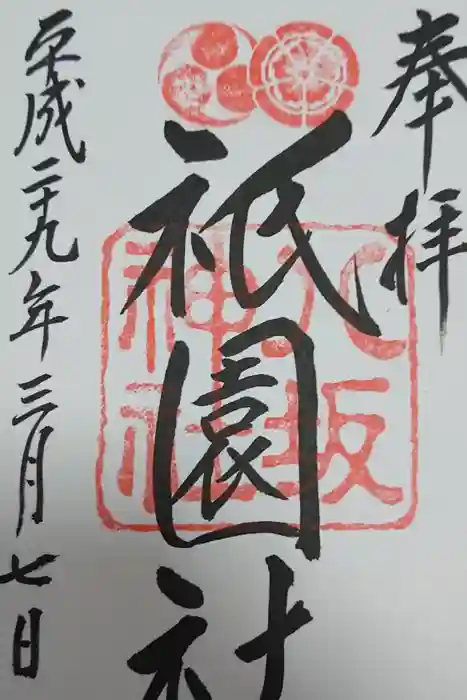 奉拝
八坂
神社
祇園社
平成二十九年三月七日